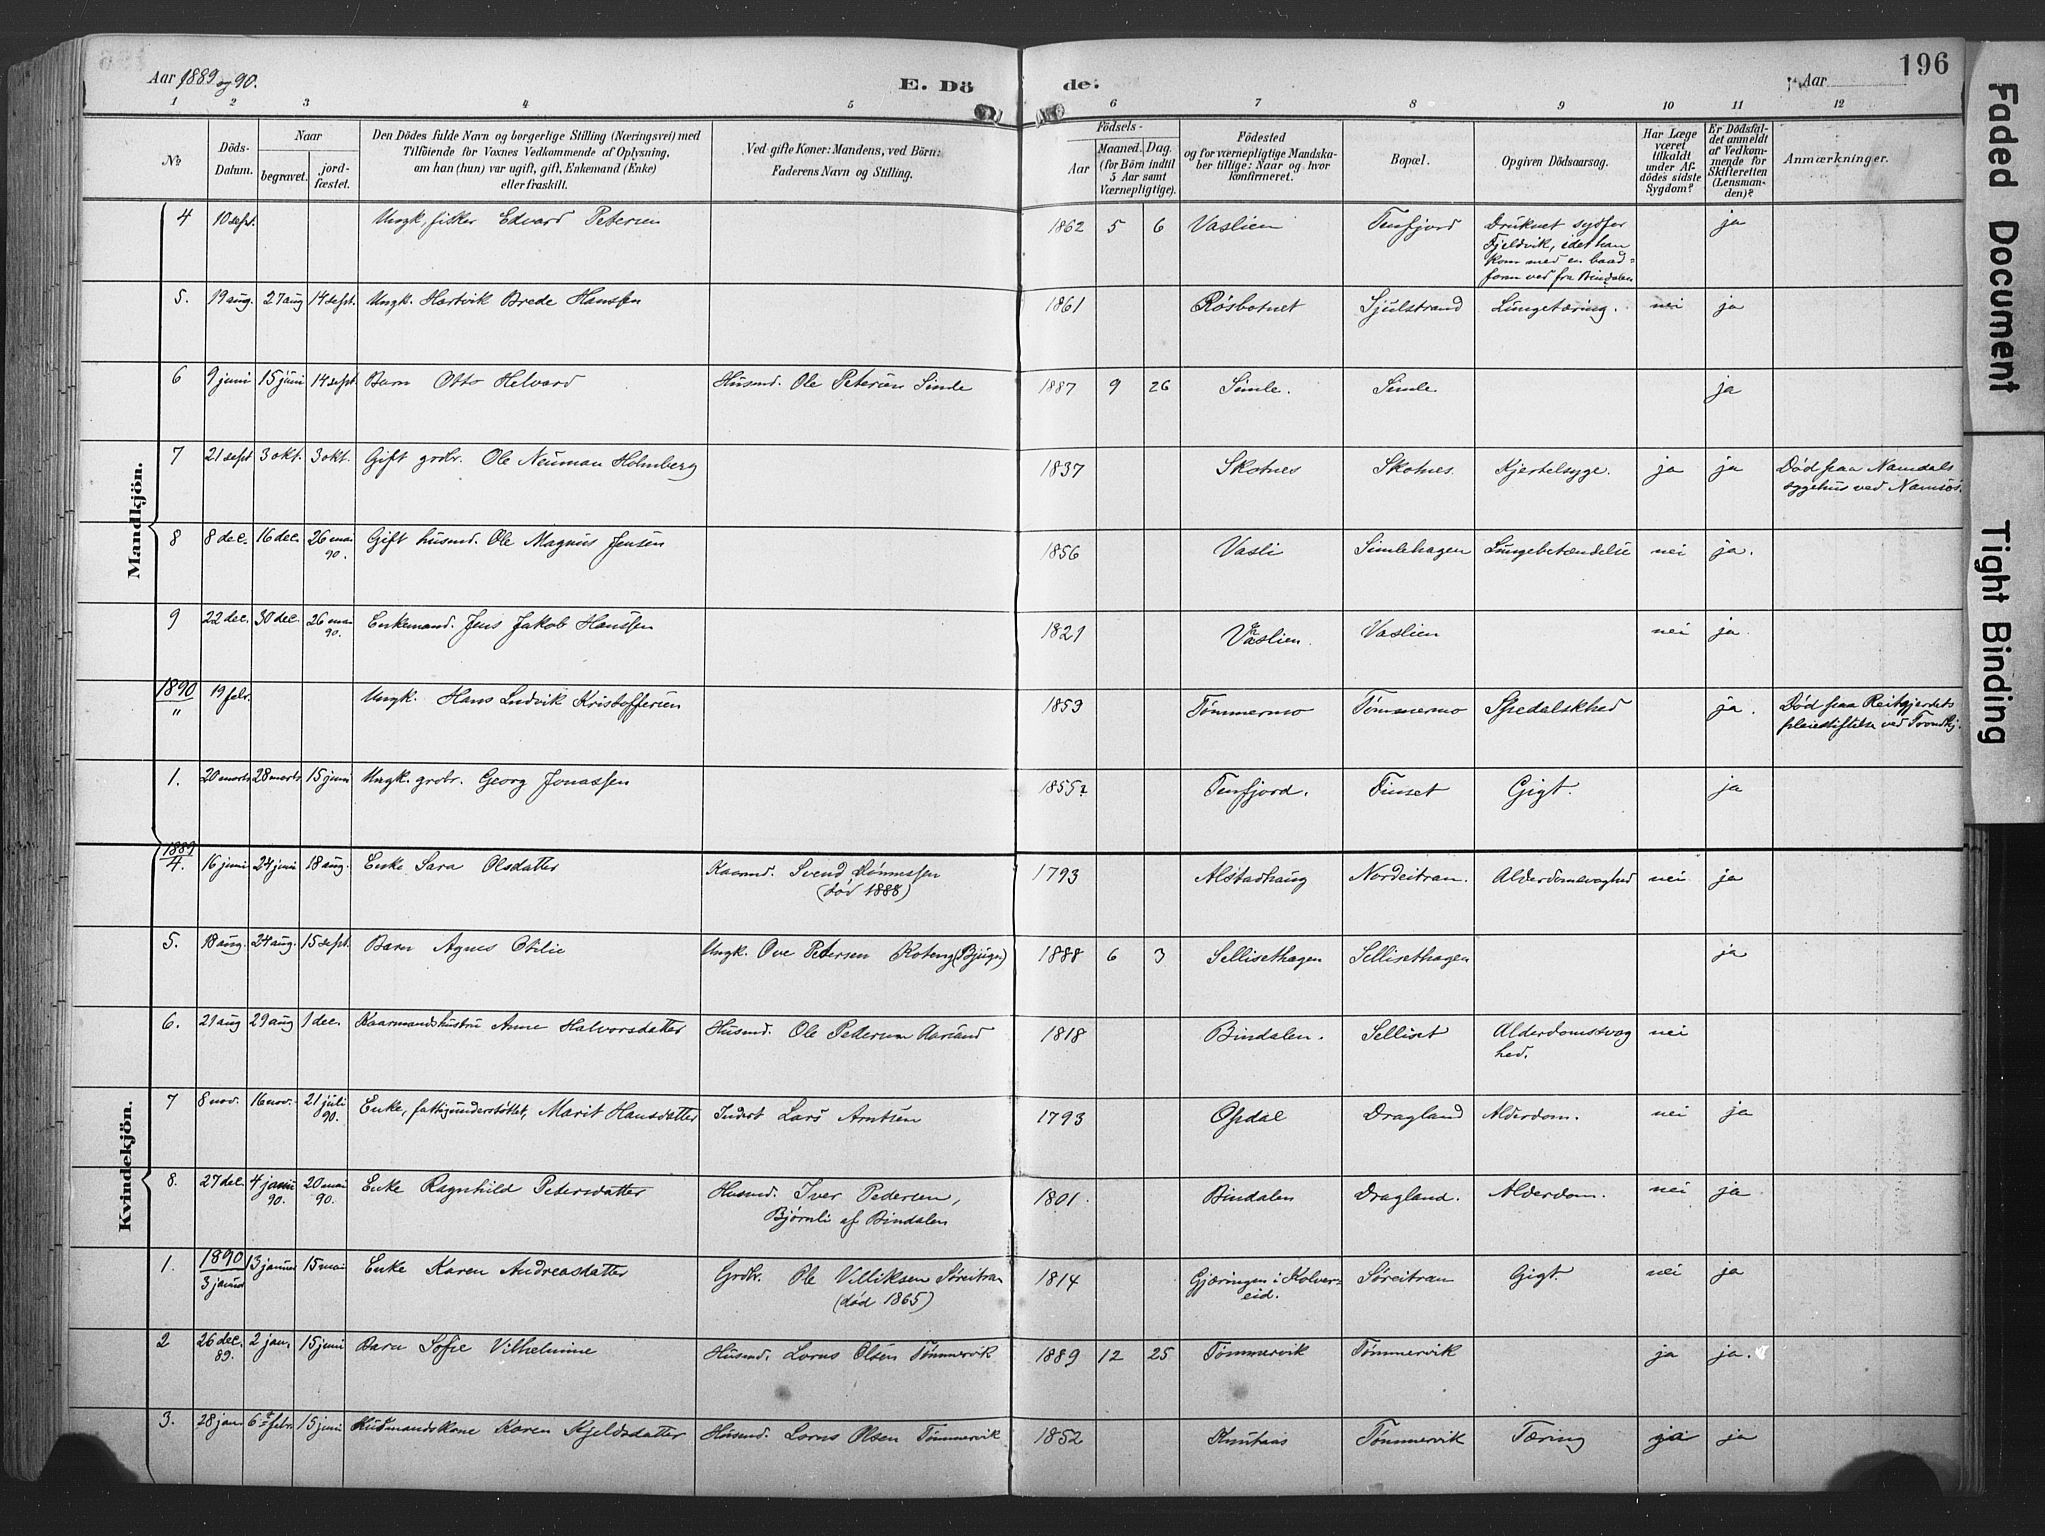 196
Aar 1889 og 90.
E. Dö de:
Aar
1 2 3 4 5 6 7 8 9 10 11 12
No
Döds-Datum.
Naar
begravet.
jord-fæstet.
Den Dödes fulde Navn og borgerlige Stilling (Næringsvei) med
Tilföiende for Voxnes Vedkommende af Oplysning,
om han (hun) var ugift, gift, Enkemand (Enke)
eller fraskilt.
Ved gifte Koner: Mandens, ved Börn:
Faderens Navn og Stilling.
Födsels-
Aar
Maaned. Dag.
(for Börn indtil
5 Aar samt
Værnepligtige).
Födested
og for værnepligtige Mandska-
ber tillige: Naar og hvor
konfirmeret.
Bopæl.
Opgiven Dödsaarsag.
Har Læge
været
tilkaldt
under Af-
dödes sidste
Sygdom?
Er Dödsfal-
det anmeldt
af Vedkom-
mende for
Skifteretten
(Lensman-
den)?
Anmærkninger.
Mandkjön.
4 10 sept. Ungk, fisker Edvard Petersen 1862 5 6 Vaslien Tenfjord Druknet sydfor ja
Fjeldvik, idet han
kom med en baad=
farm ved fra Bindalen
5. 19 aug. 27 aug 14 sept. Ungk. Hartvik Brede Hanssen 1861 Røsbotnet Sjulstrand Lungetæring. nei ja
6 9 juni 15 juni 14 sept Barn Otto Helvard Husmd. Ole Petersen Simle 1887 9 26 Simle. Simle. ja
7 21 sept 3 okt. 3 okt. Gift grdbr. Ole Neuman Holmberg 1837 Skotnes Skotnes. Kjertelsyge. ja ja Død paa Namdals
sygehus ved Namsos.
8 8 dec. 16 dec. 26 mai 90. Gift husmd. Ole Magnus Jensen 1856 Vasli Simlehagen Lungebetændelse nei ja.
9 22 dec. 30 dec. 26 mai 90. Enkemand. Jens Jakob Hanssen 1821 Vaslien. Vaslien nei ja.
1890
" 19 febr. Ungk. Hans Ludvik Kristoffersen 1853 Tømmermo Tømmermo Spedalskhed ja. Død paa Reitgjerdets
pleiestiftelse ved Trondhj.
1. 20 marts 28 marts 15 juni Ungk. grdbr. Georg Jonassen 1855? Tenfjord. Finset Gigt. ja
Kvindekjön.
1889
4. 16 juni 24 juni 18 aug. Enke Sara Olsdatter Kaarmd. Svend Rønnessen 1793 Alstadhaug Nordeitran. Alderdomsvaghed nei ja
(død 1888)
5. 18 aug. 24 aug. 15 sept. Barn Agnes Otilie Ungk. Ove Petersen Koteng (Bjugn) 1888 6 3 Sellisethagen Sellisethagen ja
6. 21 aug 29 aug 1 dec. Kaarmandshustru Anne Halvorsdatter Husmd. Ole Pedersen Aarsand 1818 Bindalen. Selliset Alderdomssvag nei
hed.
7 8 nov. 16 nov. 21 juli 90. Enke, fattigunderstøttet, Marit Hansdatter Inderst Lars Arntsen 1793 Opdal Dragland Alderdom. nei ja
8. 27 dec. 4 janu 90. 20 mai 90. Enke Ragnhild Petersdatter Husmd. Iver Pedersen, 1801. Bindalen Dragland. Alderdom. nei ja
Bjørnli af Bindalen
1. 1890 3 januar 13 januar 15 mai Enke Karen Andreasdatter Grdbr. Ole Villiksen Søreitran 1814 Gjæringen i Kolver- Søreitran Gigt. nei ja
(død 1865) eid.
2 26 dec. 89. 2 jan. 15 juni Barn Sofie Vilhelmine Husmd. Lorns Olsen Tømmervik 1889 12 25 Tømmervik Tømmervik ja ja.
3. 28 jan. 6 febr. 15 juni Husmandskone Karen Kjeldsdatter Husmd. Lorns Olsen Tømmervik 1852 Tømmervik Tæring ja ja
Faded Document
Tight Binding